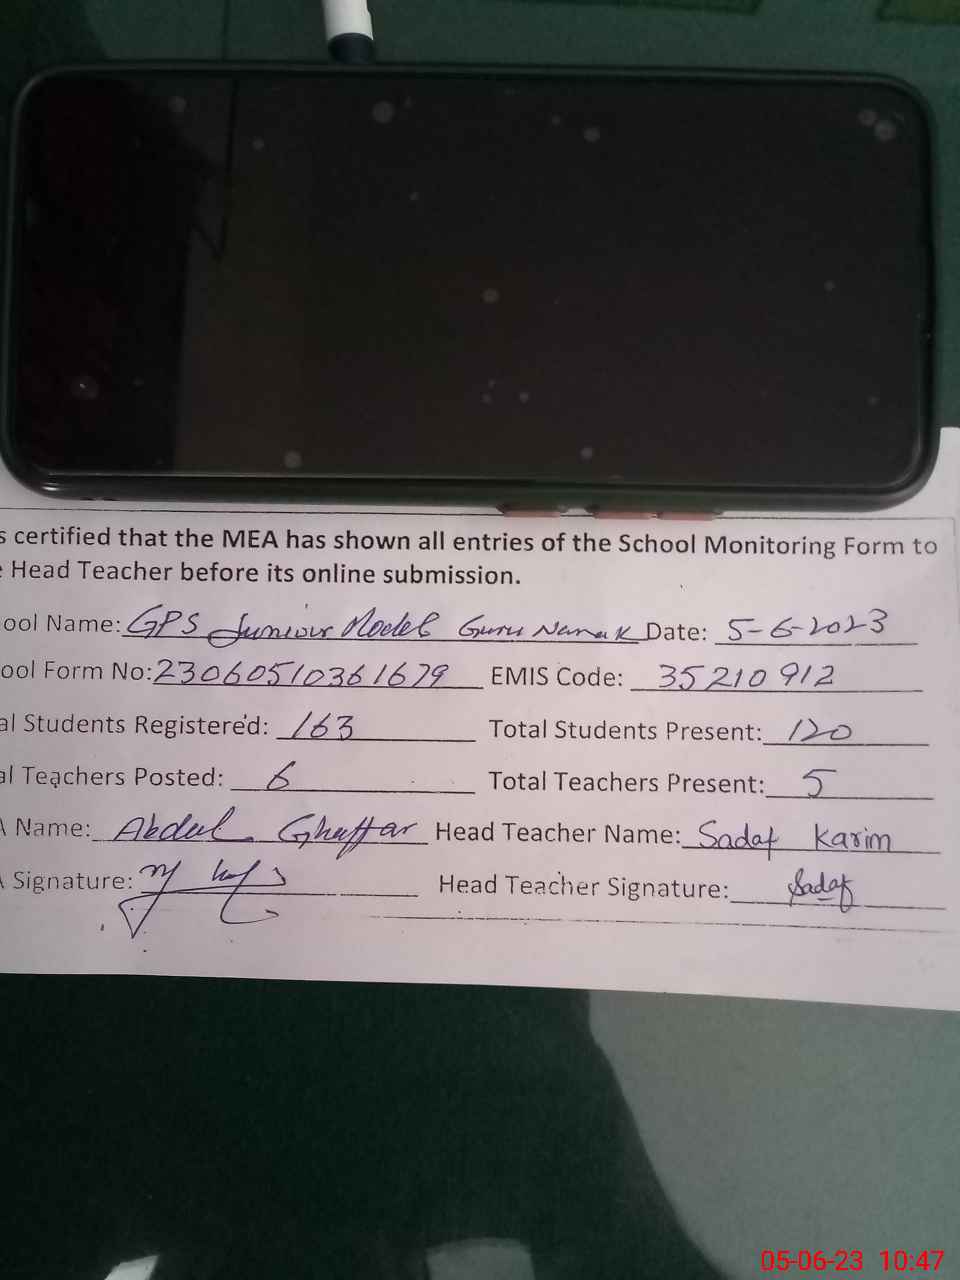 s certified that the MEA has shown all entries of the School Monitoring Form to
e Head Teacher before its online submission.
ool Name: GPS Juniour Model Guru Nanak Date: 5-6-2023
ool Form No: 23060510361679 EMIS Code: 35210912
al Students Registered: 163 Total Students Present: 120
al Teachers Posted: 6 Total Teachers Present: 5
A Name: Abdul Ghaffar Head Teacher Name: Sadaf Karim
A Signature: Head Teacher Signature: Sadaf
05-06-23 10:47